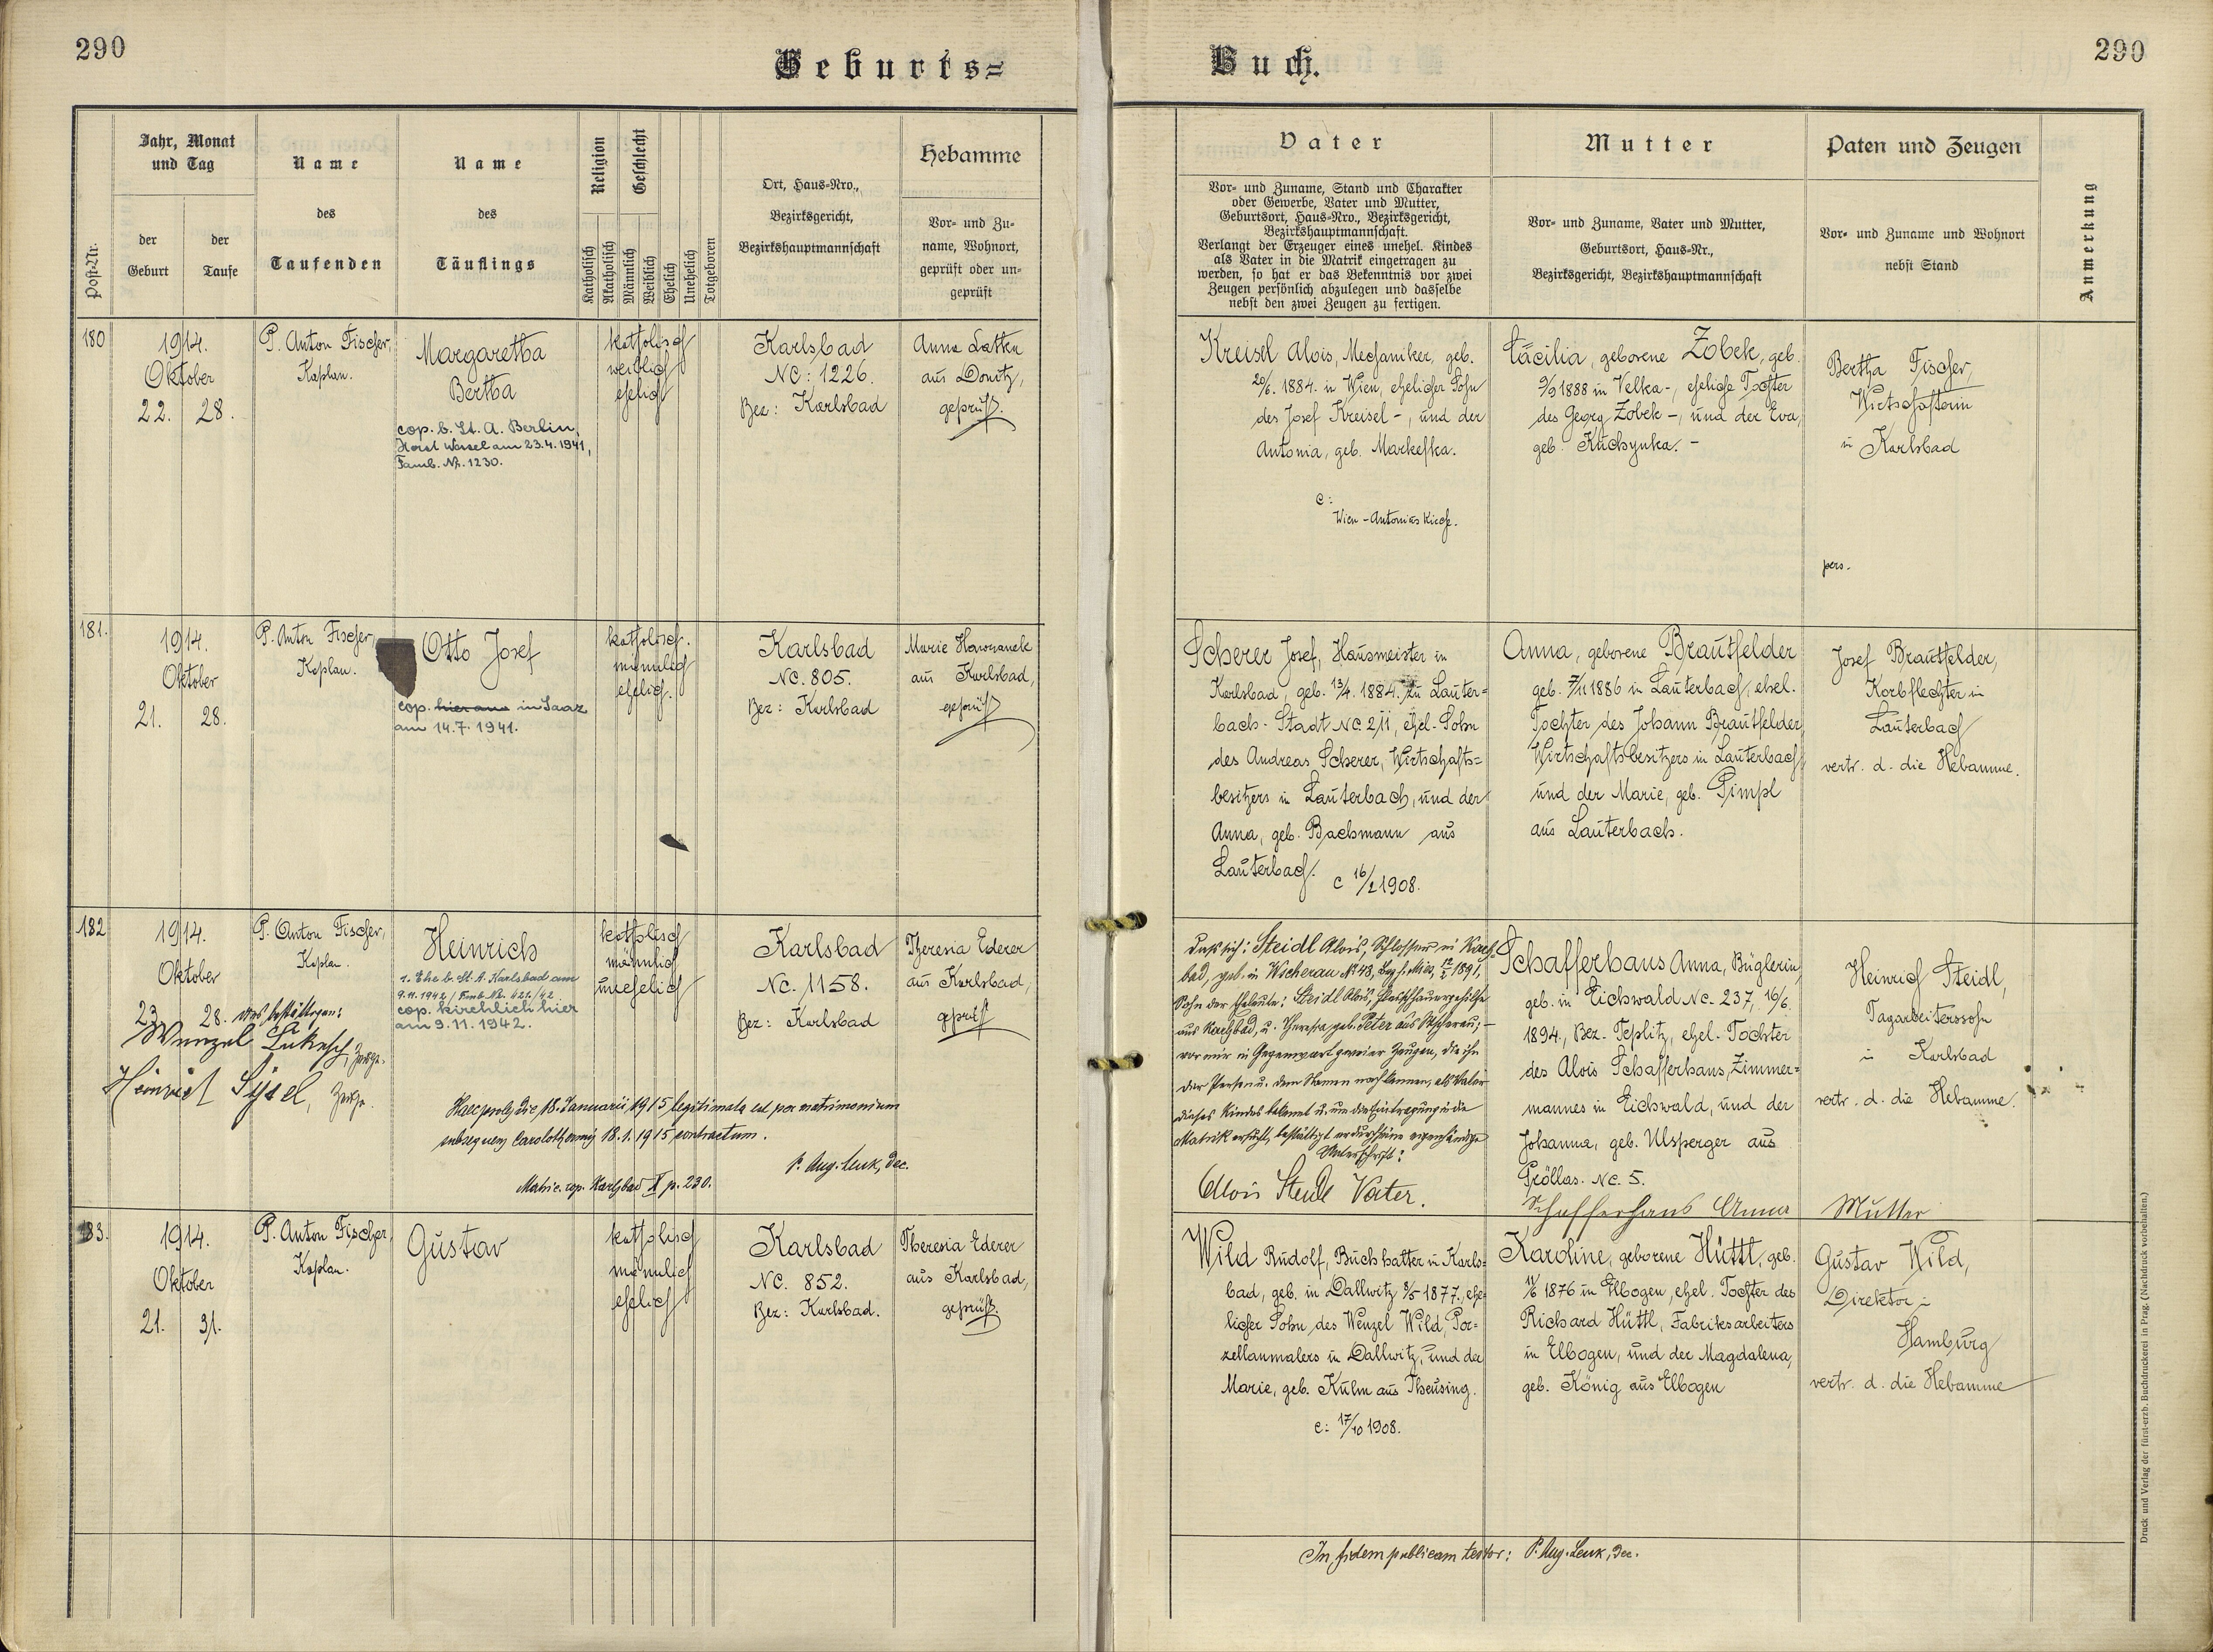 290
Geburts=
Post-Nr.
Jahr, Monat
und Tag
der
Geburt
der
Taufe
Name
des
Taufenden
Name
des
Täuflings
Religion
Katholisch
Akatholisch
Geschlecht
Männlich
Weiblich
Ehelich
Unehelich
Totgeboren
Ort, Haus-Nro.,
Bezirksgericht,
Bezirkshauptmannschaft
Hebamme
Vor- und Zu-
name, Wohnort,
geprüft oder un-
geprüft
180
1914.
Oktober
22. 28.
P. Anton Fischer,
Kaplan.
Margaretha
Bertha
cop. b. St. A. Berlin,
Horst Wessel am 23.4.1941,
Famb. Nr. 1230.
katholisch
weiblich
ehelich
Karlsbad
NC: 1226.
Bez: Karlsbad
Anna Lattka
aus Donitz,
geprüft.
181.
1914.
Oktober
21. 28.
P. Anton Fischer,
Kaplan.
Otto Josef
cop. hier am in Saaz
am 14.7.1941.
katholisch.
männlich
ehelich.
Karlsbad
NC. 805.
Bez: Karlsbad
Marie Hawranek
aus Karlsbad,
geprüft
182
1914.
Oktober
23. 28. was bestättigen:
Wenzel Lukesch, Zeuge.
Heinrich Zeuge.
P. Anton Fischer,
Kaplan.
Heinrich
1. Ehe b. St. A. Karlsbad am
9.11.1942 / Famb. Nr. 421./42
cop. kirchlich hier
am 9.11.1942.
katholisch
männlich
unehelich
Karlsbad
NC. 1158.
Bez: Karlsbad
Theresia Ederer
aus Karlsbad,
geprüft
Haec proles die 18. Januarii 1915 legitimata est per matrimonium
subsequens 18.1.1915 contractum.
P. Aug. Lenk, Dec.
Matric. cop. Karlsbad X p. 230.
183.
1914.
Oktober
21. 31.
P. Anton Fischer,
Kaplan.
Gustav
katholisch
männlich
ehelich
Karlsbad
NC. 852.
Bez: Karlsbad.
Theresia Ederer
aus Karlsbad,
geprüft.
Buch.
290
Vater
Vor- und Zuname, Stand und Charakter
oder Gewerbe, Vater und Mutter,
Geburtsort, Haus-Nro., Bezirksgericht,
Bezirkshauptmannschaft.
Verlangt der Erzeuger eines unehel. Kindes
als Vater in die Matrik eingetragen zu
werden, so hat er das Bekenntnis vor zwei
Zeugen persönlich abzulegen und dasselbe
nebst den zwei Zeugen zu fertigen.
Mutter
Vor- und Zuname, Vater und Mutter,
Geburtsort, Haus-Nr.,
Bezirksgericht, Bezirkshauptmannschaft
Paten und Zeugen
Vor- und Zuname und Wohnort
nebst Stand
Anmerkung
Kreisel Alois, Mechaniker, geb.
20/6. 1884. in Wien, ehelicher Sohn
des Josef Kreisel -, und der
Antonia, geb. Markefka.
c:
Wien - Antonius Kirche.
Cäcilia, geborene Zobek, geb.
9/9 1888 in Velka -, eheliche Tochter
des Georg Zobek -, und der Eva,
geb. Kuchynka. -
Bertha Fischer,
Wirtschafterin
in Karlsbad
pers.
Scherer Josef, Hausmeister in
Karlsbad, geb. 13/4. 1884. zu Lauter=
bach - Stadt NC. 211, ehel. Sohn
des Andreas Scherer, Wirtschafts=
besitzers in Lauterbach, und der
Anna, geb. Bachmann aus
Lauterbach.
c 16/2 1908.
Anna, geborene Brautfelder
geb. 7/11 1886 in Lauterbach, ehel.
Tochter des Johann Brautfelder,
Wirtschaftsbesitzers in Lauterbach,
und der Marie, geb. Pimpl
aus Lauterbach.
Josef Brautfelder,
Korbflechter in
Lauterbach
vertr. d. die Hebamme.
Dass sich: Steidl Alois, Schlosser in Karls=
bad, geb. in Wscherau No 48, Bez. Mies, 12/2 1891,
Sohn der Eheleute: Steidl Alois, Fleischhauergehilfe
aus Karlsbad, u. Theresia, geb. Peter aus Wscherau; -
vor mir in Gegenwart zweier Zeugen, die ihn
der Person u. dem Namen nach kennen, als Vater
dieses Kindes bekennt u. um die Eintragung in die
Matrik ersucht, bestättigt er durch seine eigenhändige
Unterschrift:
Alois Steidl Vater.
Schafferhans Anna, Büglerin,
geb. in Eichwald NC. 237, 16/6.
1894., Bez. Teplitz, ehel. Tochter
des Alois Schafferhans, Zimmer=
mannes in Eichwald, und der
Johanna, geb. Ulsperger aus
Pröllas. NC. 5.
Schafferhans Anna Mutter
Heinrich Steidl,
Tagarbeiterssohn
in Karlsbad
vertr. d. die Hebamme.
Wild Rudolf, Buchhalter in Karls=
bad, geb. in Dallwitz 8/5 1877., ehe=
licher Sohn des Wenzel Wild, Por=
zellanmalers in Dallwitz, und der
Marie, geb. Kulm aus Theusing.
c: 17/10 1908.
Karoline, geborene Hüttl, geb.
1876 in Elbogen, ehel. Tochter des
Richard Hüttl, Fabriksarbeiters
in Elbogen, und der Magdalena,
geb. König aus Elbogen
Gustav Wild,
Direktor in
Hamburg
vertr. d. die Hebamme
In fidem publicam testor: P. Aug. Lenk, Dec.
Druck und Verlag der fürst-erzb. Buchdruckerei in Prag. (Nachdruck vorbehalten.)